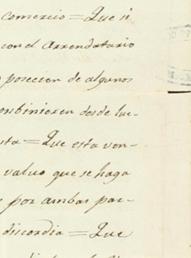 comercio = Que si
con el Arrendatario
poseccion de algunos
ombinieren desde lue-
sta = Que esta ven-
value que se haga
por ambas par-
discordia = Que